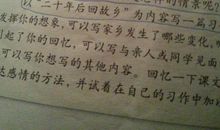 的情景呢?
以“二十年后回故乡”为内容写一篇习
发挥你的想象,可以写家乡发生了哪些变化,
起了你的回忆,可以写与亲人或同学见面
可以写你想写的其他内容。回忆一下课文
达感情的方法,并试着在自己的习作中加